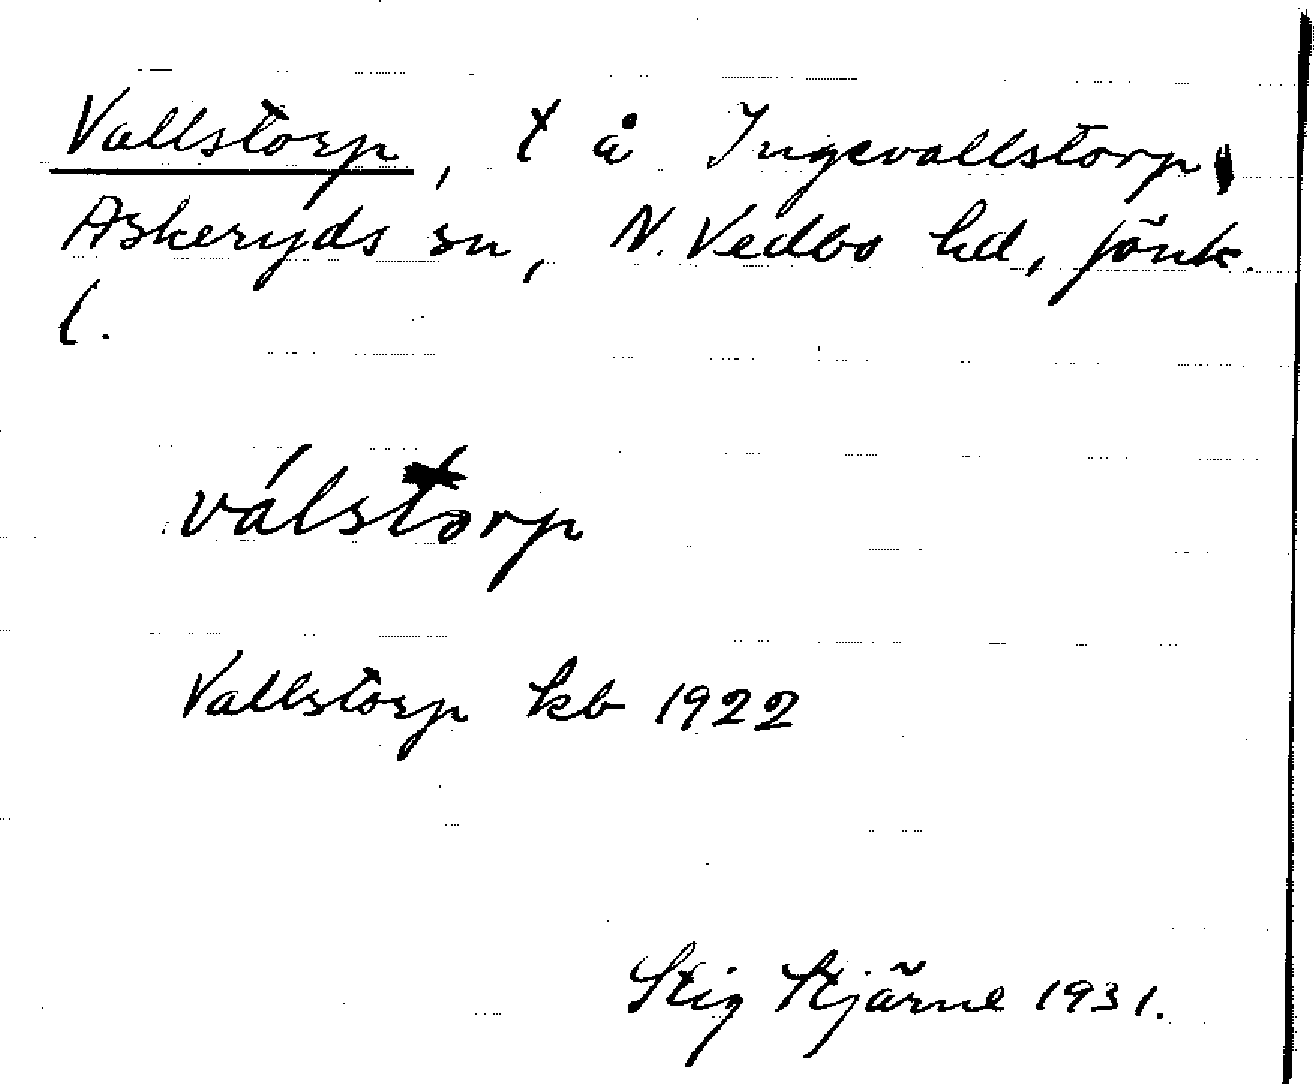 Vallstorp, t å Ingevallstorp,
Askeryds sn, N. Vedbo hd, Jönk.
l.
válstorp
Vallstorp kb 1922
Stig Stjärne 1931.